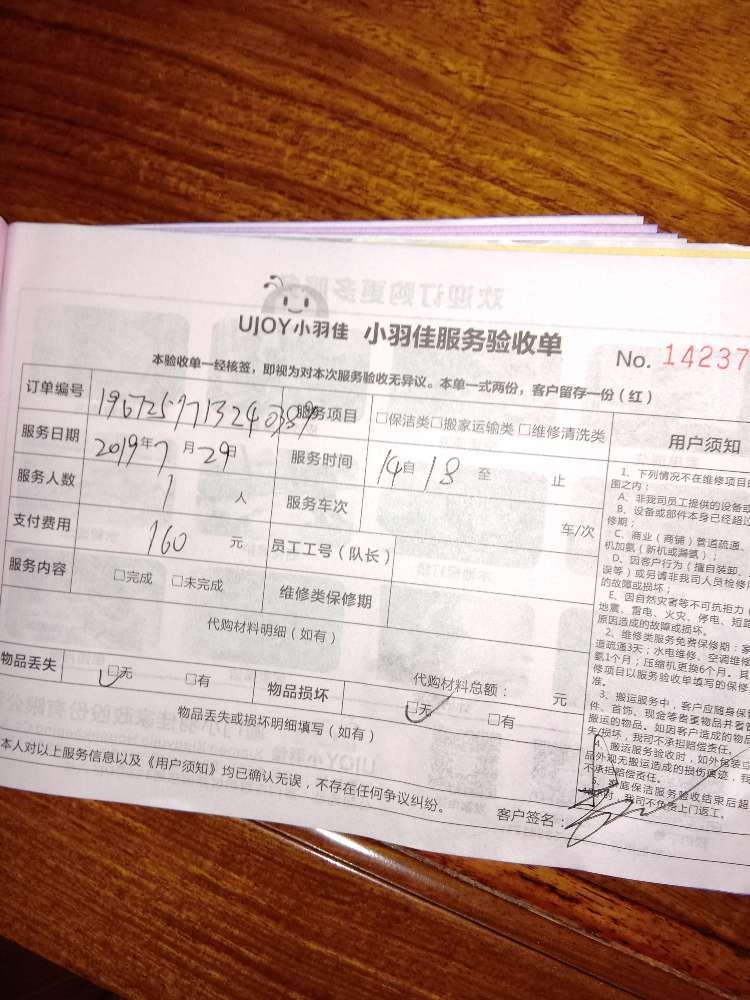 UJOY小羽佳 小羽佳服务验收单
No. 14237
本验收单一经核签，即视为对本次服务验收无异议。本单一式两份，客户留存一份（红）
订单编号 服务项目 □保洁类□搬家运输类 □维修清洗类
服务日期 2019年7月29日 服务时间 14自18至 止
服务人数 1 人 服务车次 车/次
支付费用 160 元 员工工号（队长）
服务内容 □完成 □未完成 维修类保修期
代购材料明细（如有）
代购材料总额： 元
物品丢失 □无 □有 物品损坏 □无 □有
物品丢失或损坏明细填写（如有）
本人对以上服务信息以及《用户须知》均已确认无误，不存在任何争议纠纷。
客户签名：
用户须知
1、下列情况不在维修项目的
围之内：
A、非我司员工提供的设备或
B、设备或部件本身已经超过
修期；
C、商业（商铺）管道疏通、
机加氨（新机或漏氨）；
D、因客户行为（擅自装卸、
误等）或另请非我司人员检修
的故障或损坏；
E、因自然灾害等不可抗拒力（
地震、雷电、火灾、停电、短路
原因造成的故障或损坏。
2、维修类服务免费保修期：家
道疏通3天；水电维修、空调维修
氨1个月；压缩机更换6个月。其
修项目以服务验收单填写的保修
准。
3、搬运服务中，客户应随身保管
件、首饰、现金等贵重物品并看管
搬运的物品。如因客户造成的物品
失/损坏，我司不承担赔偿责任。
4、搬运服务验收时，如外包装或
品外观无搬运造成的损伤痕迹，我
不承担赔偿责任。
5、家庭保洁服务验收结束后超
时，我司不负责上门返工。